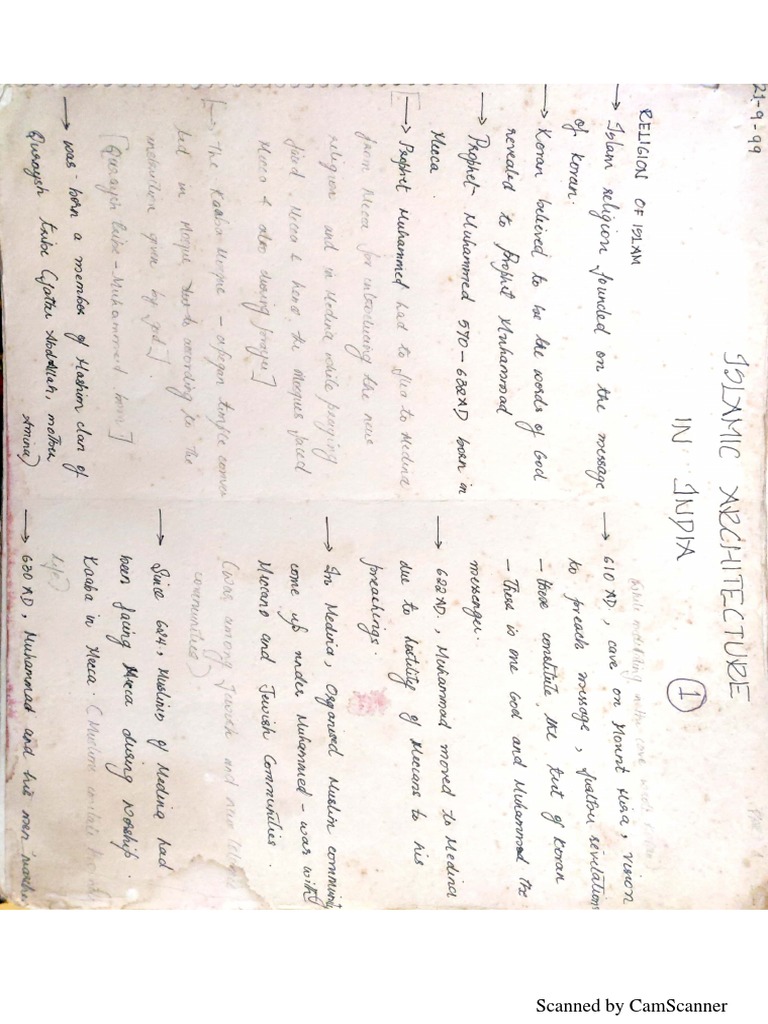 21-9-99
ISLAMIC ARCHITECTURE
IN INDIA
1
RELIGION OF ISLAM
→ Islam religion founded on the message
of Koran.
→ Koran believed to be the words of God
revealed to Prophet Muhammad
→ Prophet Muhammed 570-632AD born in
Mecca.
[→ Prophet Muhammed had to flee to Medina
from Mecca for introducing the new
religion and in Medina while praying
faced Mecca & hence the Mosques faced
Mecca & also during prayer]
[→ The Kaaba Mosque - a pagan temple
had in Mosque according to the
instruction given by god.]
[Quraysh tribe - Muhammed born]
→ was born a member of Hashim clan of
Quraysh tribe (father Abdallah, mother
Amina)
→ 610 AD, cave on Mount Hira, vision
to preach message, further revelations
- these constitute the text of Koran
- There is one God and Muhammad the
messenger.
→ 622AD., Muhammad moved to Medina
due to hostility of Meccans to his
preachings.
→ In Medina, Organised Muslim community
come up under Muhammed - was with
Meccans and Jewish Communities.
(was among Jewish and
communities)
→ Since 624, Muslims of Medina had
been facing Mecca during Worship.
Kaaba in Mecca. (Muslims
→ 630 AD, Muhammad and his men